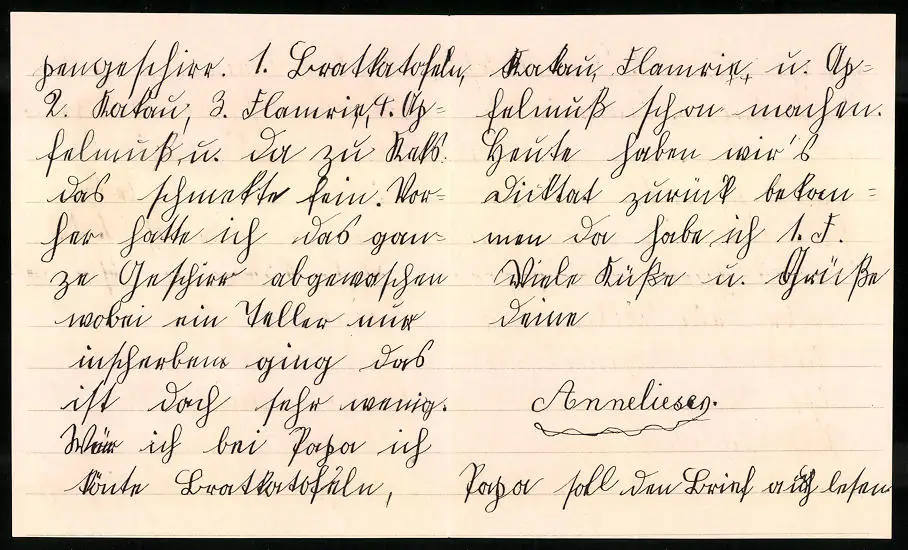 pengeschirr. 1. Bratkatofeln,
2. Kakau, 3. Flamrie, 4. Ap=
felmuß, u. da zu Keks.
das schmekte fein. Vor=
her hatte ich das gan=
ze Geschirr abgewaschen
wobei ein Teller nur
inscherben ging das
ist doch sehr wenig.
Wär ich bei Papa ich
könte Bratkatofeln,
Kakau, Flamrie, u. Ap=
felmuß schon machen.
Heute haben wir's
Dicktat zurück bekom=
men da habe ich 1. F.
Viele Küße u. Grüße
deine
Anneliese.
Papa soll den Brief auch lesen